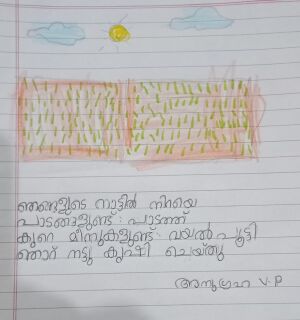 ഞങ്ങളുടെ നാട്ടിൽ നിറയെ
പാടങ്ങളുണ്ട്. പാടത്ത്
കുറെ മീനുകളുണ്ട്. വയൽ പൂട്ടി
ഞാറ് നട്ടു കൃഷി ചെയ്തു
അനുഗ്രഹ V.P